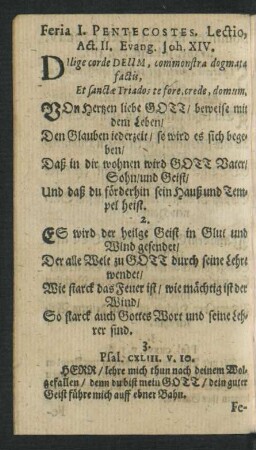 Feria I. PENTECOSTES. Lectio,
Act. II. Evang. Joh. XIV.
DIlige corde DEUM, commonstra dogmata
factis,
Et sanctæ Triados te fore, crede, domum.
VOn Hertzen liebe GOTT / beweise mit
dem Leben /
Den Glauben iederzeit / so wird es sich bege-
ben /
Daß in dir wohnen wird GOTT Vater /
Sohn / und Geist /
Und daß du förderhin sein Hauß und Tem-
pel heist.
2.
ES wird der heilge Geist in Glut und
Wind gesendet /
Der alle Welt zu GOTT durch seine Lehre
wendet /
Wie starck das Feuer ist / wie mächtig ist der
Wind /
So starck auch Gottes Wort und seine Leh-
rer sind.
3.
Psal. CXLIII. v. 10.
HERR / lehre mich thun nach deinem Wol-
gefallen / denn du bist mein GOTT / dein guter
Geist führe mich auff ebner Bahn.
Fe-